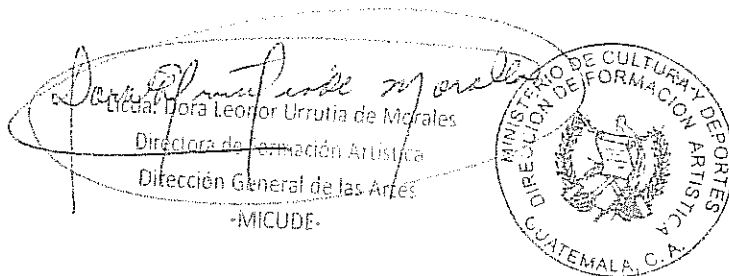 Licda. Dora Leonor Urrutia de Morales
Directora de Formación Artística
Dirección General de las Artes
-MICUDE-
MINISTERIO DE CULTURA Y DEPORTES
DIRECCION DE FORMACION ARTISTICA
GUATEMALA, C. A.